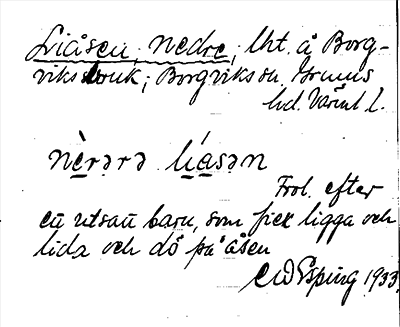 Liåsen, nedre; lht. å Borg-
viks bruk; Borgviks sn, Grums
hd. Värml l.
nèrərə líasən
Trol. efter
en utsatt barn, som fick ligga och
lida och dö på åsen
CW Esping 1933.